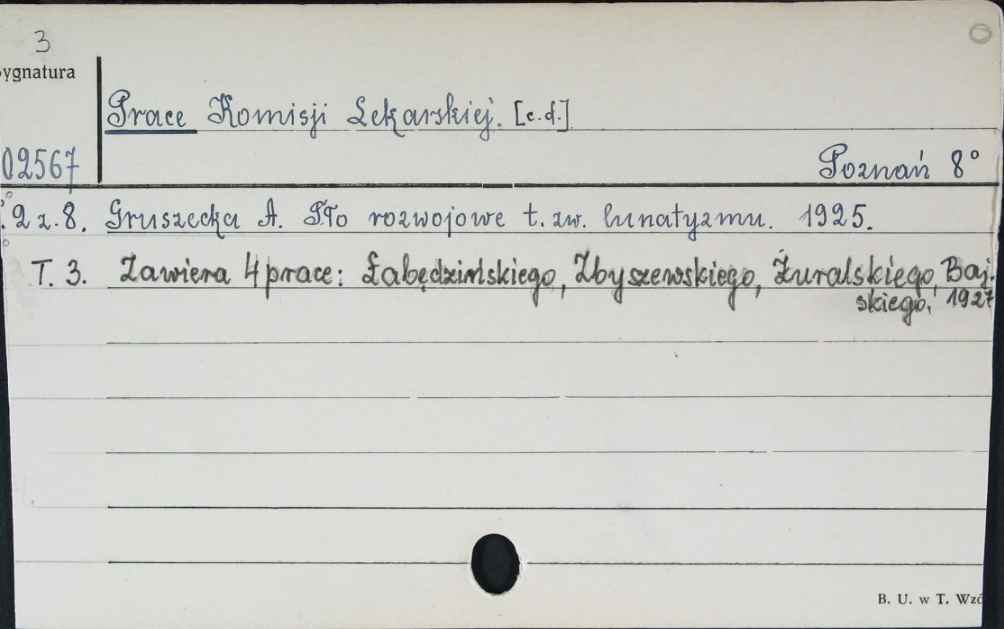 3
ygnatura
Prace Komisji Lekarskiej. [c.d.]
02567
Poznań 8°
2 z.8. Gruszecka A. Tło rozwojowe t. zw. lunatyzmu. 1925.
T. 3. Zawiera 4 prace: Łabędzińskiego, Zbyszewskiego, Żuralskiego, Baj-
skiego. 1927
B. U. w T. Wzó